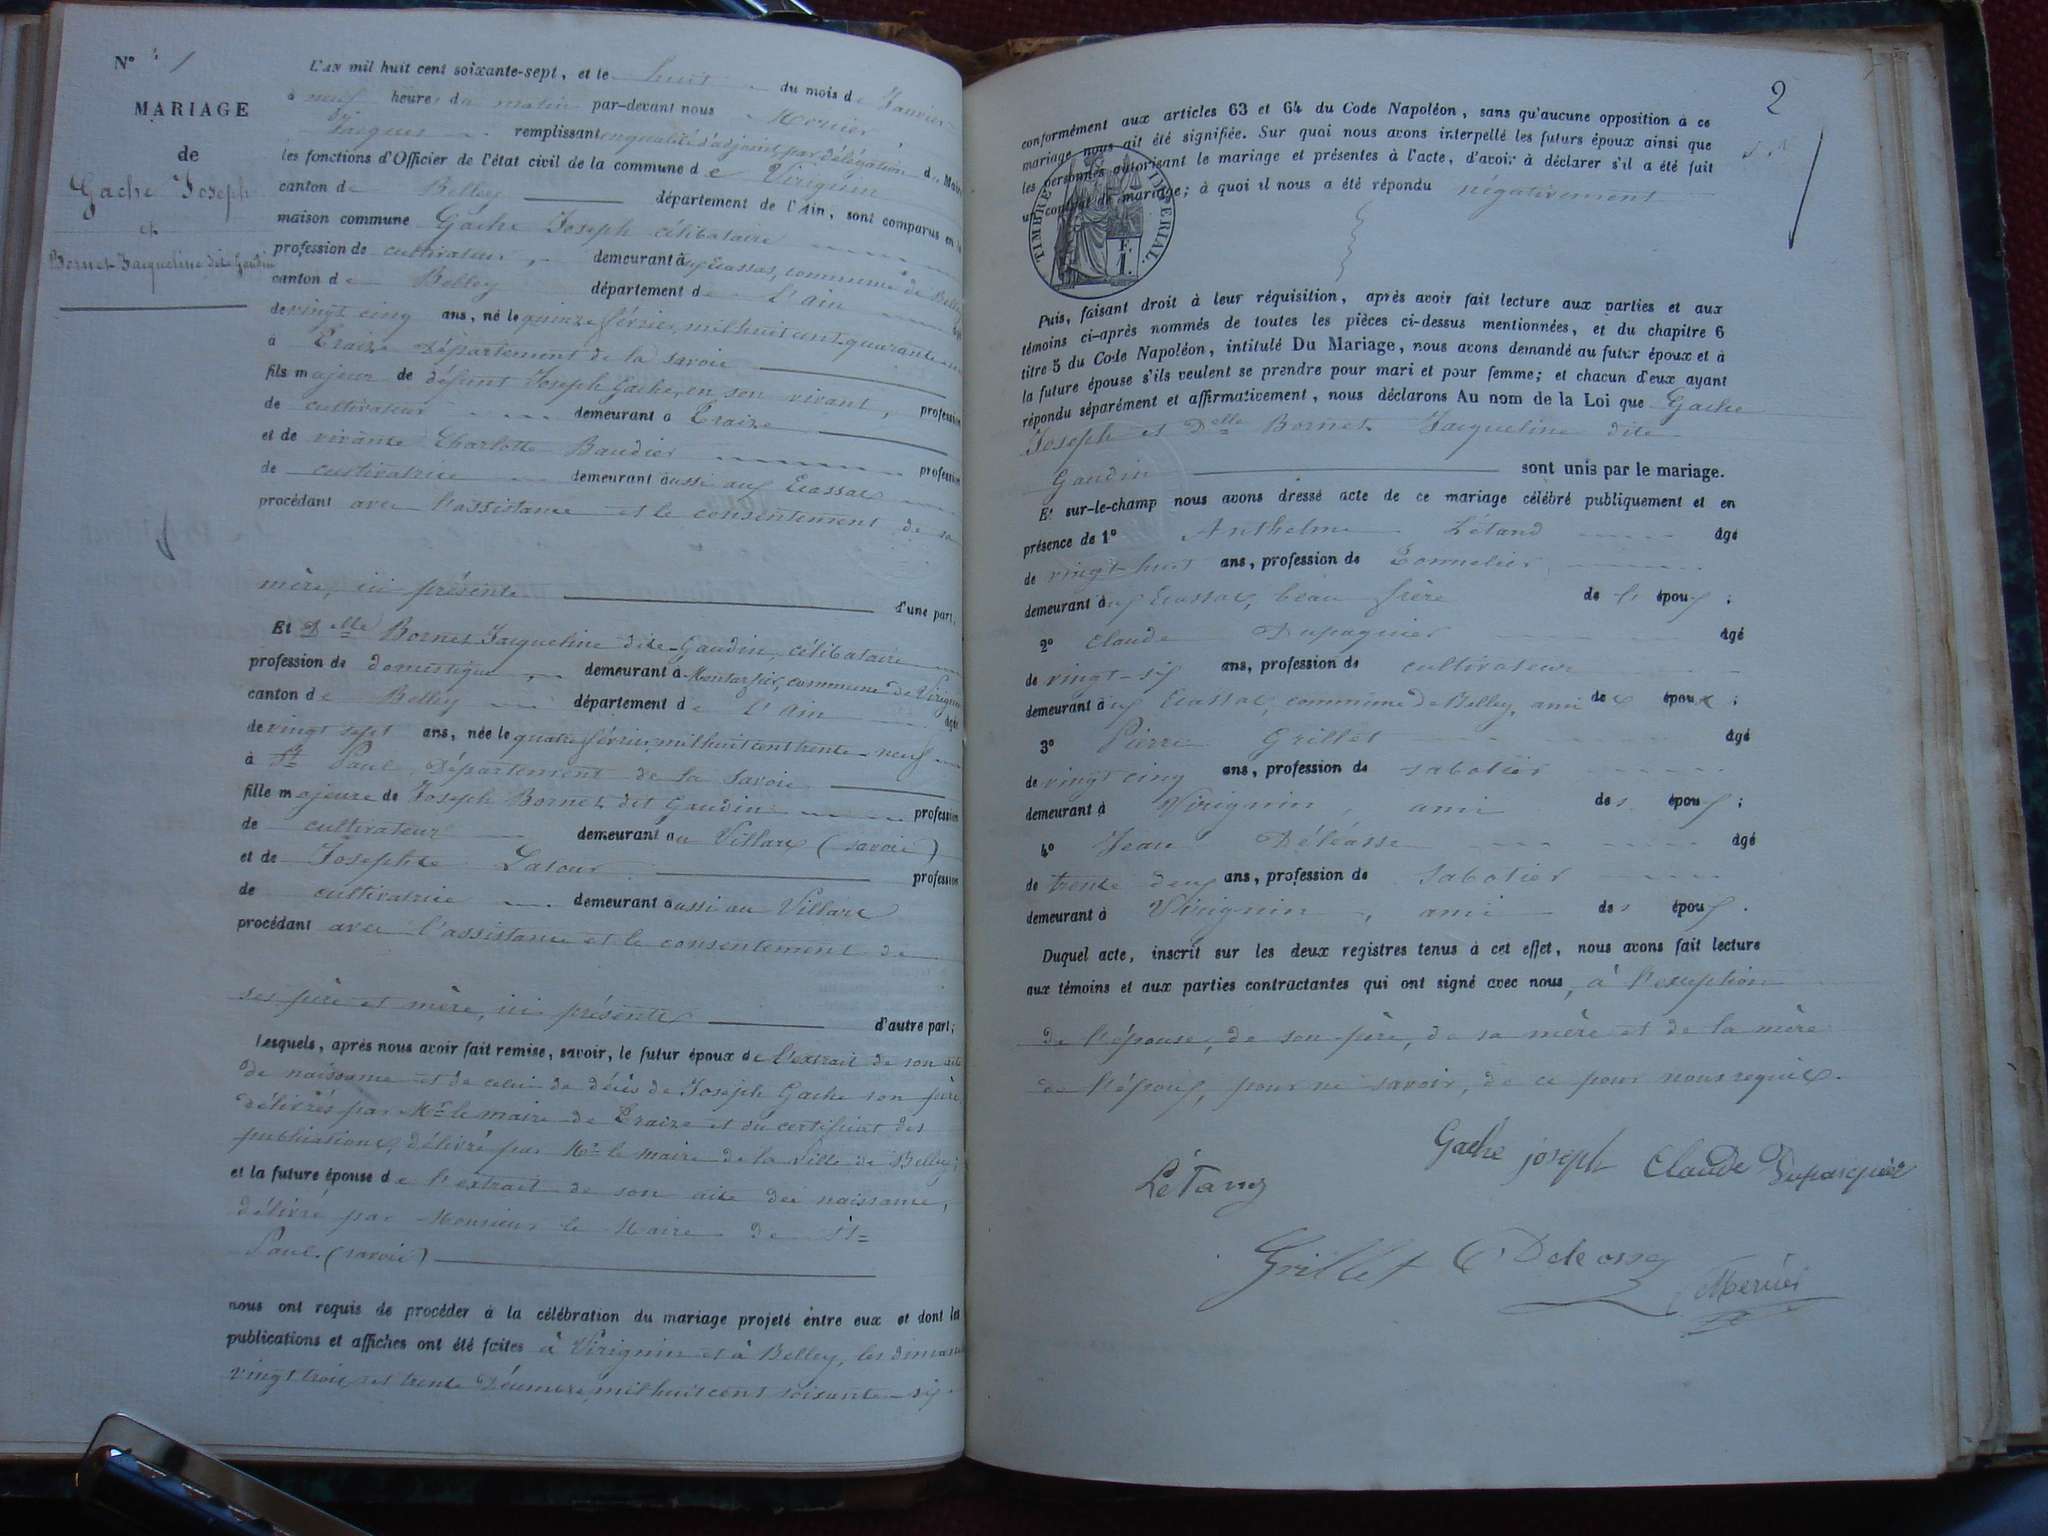 N° 1
MARIAGE
de
Gache Joseph
et
Bornet Jacqueline dite Gaudin
L'AN mil huit cent soixante-sept, et le huit du mois de Janvier
à neuf heures du matin par-devant nous Mercier
Jacques remplissant en qualité d'adjoint par délégation du Maire
les fonctions d'Officier de l'état civil de la commune de Virignin
canton de Belley département de l'Ain, sont comparus en la
maison commune Gache Joseph célibataire
profession de cultivateur, demeurant aux Ecassas, commune de Belley
canton de Belley département de L'Ain âgé
de vingt cinq ans, né le quinze février mil huit cent quarante un
à Traize Département de la Savoie
fils majeur de défunt Joseph Gache, en son vivant, profession
de cultivateur demeurant à Traize
et de vivante Charlotte Baudier profession
de cultivatrice demeurant aussi aux Ecassas
procédant avec l'assistance et le consentement de sa
mère, ici présente d'une part;
Et Delle Bornet Jacqueline dite Gaudin, célibataire
profession de domestique, demeurant à commune de Virignin
canton de Belley département de L'Ain âgée
de vingt sept ans, née le quatre février mil huit cent trente-neuf
à St Paul, Département de la Savoie
fille majeure de Joseph Bornet dit Gaudin profession
de cultivateur demeurant au Villars (Savoie)
et de Josephte Latour profession
de cultivatrice demeurant aussi au Villars
procédant avec l'assistance et le consentement de
ses père et mère, ici présents d'autre part;
Lesquels, après nous avoir fait remise, savoir, le futur époux de l'extrait de son acte
de naissance et de celui de décès de Joseph Gache son père
délivrés par Mr le maire de Traize et du certificat des
publications, délivré par Mr le maire de la ville de Belley;
et la future épouse de l'extrait de son acte de naissance,
délivré par Monsieur le Maire de St
Paul. (Savoie)
nous ont requis de procéder à la célébration du mariage projeté entre eux et dont les
publications et affiches ont été faites à Virignin et à Belley, les dimanches
vingt trois et trente Décembre mil huit cent soixante-six
2
conformément aux articles 63 et 64 du Code Napoléon, sans qu'aucune opposition à ce
mariage nous ait été signifiée. Sur quoi nous avons interpellé les futurs époux ainsi que
les personnes autorisant le mariage et présentes à l'acte, d'avoir à déclarer s'il a été fait
un contrat de mariage; à quoi il nous a été répondu négativement
TIMBRE IMPÉRIAL
F.
1.
Puis, faisant droit à leur réquisition, après avoir fait lecture aux parties et aux
témoins ci-après nommés de toutes les pièces ci-dessus mentionnées, et du chapitre 6
titre 5 du Code Napoléon, intitulé Du Mariage, nous avons demandé au futur époux et à
la future épouse s'ils veulent se prendre pour mari et pour femme; et chacun d'eux ayant
répondu séparément et affirmativement, nous déclarons Au nom de la Loi que Gache
Joseph et Delle Bornet Jacqueline dite
Gaudin sont unis par le mariage.
Et sur-le-champ nous avons dressé acte de ce mariage célébré publiquement et en
présence de 1° Anthelme Létang âgé
de vingt-huit ans, profession de Tonnelier
demeurant aux Ecassas, beau frère de l' époux;
2° Claude Dupasquier âgé
de vingt-six ans, profession de cultivateur
demeurant aux Ecassas, commune de Belley, ami des époux;
3° Pierre Grillet âgé
de vingt cinq ans, profession de sabotier
demeurant à Virignin, ami des époux;
4° Jean Déléasse âgé
de trente deux ans, profession de sabotier
demeurant à Virignin, ami des époux.
Duquel acte, inscrit sur les deux registres tenus à cet effet, nous avons fait lecture
aux témoins et aux parties contractantes qui ont signé avec nous, à l'exception
de l'épouse, de son père, de sa mère et de la mère
de l'époux, pour ne savoir, de ce par nous requis.
Gache joseph Claude Dupasquier
Létang
Grillet Deleasse
Mercier